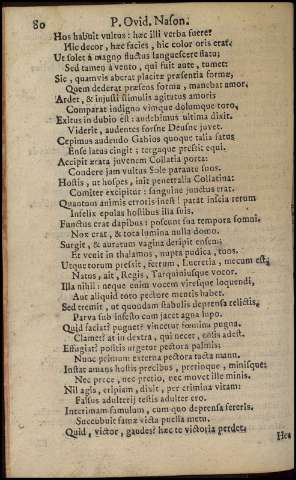 80 P. Ovid. Nason.
Hos habuit vultus: hæc illi verba fuere:
Hic decor, hæc facies, hic color oris erat.
Ut solet à magno fluctus languescere flatu;
Sed tamen à vento, qui fuit ante, tumet:
Sic, quamvis aberat placitæ præsentia formæ,
Quem dederat præsens forma, manebat amor.
Ardet, & injusti stimulis agitatus amoris
Comparat indigno vimque dolumque toro.
Exitus in dubio est: audebimus ultima dixit.
Viderit, audentes forsne Deusne juvet.
Cepimus audendo Gabios quoque talia fatus
Ense latus cingit: tergaque pressit equi.
Accipit ærata juvenem Collatia porta:
Condere jam vultus Sole parante suos.
Hostis, ut hospes, init penetralia Collatina:
Comiter excipitur: sanguine junctus erat.
Quantum animis erroris inest! parat inscia rerum
Infelix epulas hostibus illa suis.
Functus erat dapibus: poscunt sua tempora somni.
Nox erat, & tota lumina nulla domo.
Surgit, & auratum vagina deripit ensem;
Et venit in thalamos, nupta pudica, tuos.
Utque torum pressit, ferrum, Lucretia, mecum est,
Natus, ait, Regis, Tarquiniusque vocor.
Illa nihil: neque enim vocem viresque loquendi,
Aut aliquid toto pectore mentis habet.
Sed tremit, ut quondam stabulis deprensa relictis,
Parva sub infesto cum jacet agna lupo.
Quid faciat? pugnet? vincetur fœmina pugna.
Clamet? at in dextra, qui necet, ensis adest.
Effugiat? positis urgetur pectora palmis;
Nunc primum externa pectora tacta manu.
Instat amans hostis precibus, pretioque, minisque:
Nec prece, nec pretio, nec movet ille minis.
Nil agis, eripiam, dixit, per crimina vitam:
Falsus adulterii testis adulter ero.
Interimam famulum, cum quo deprensa fereris.
Succubuit famæ victa puella metu.
Quid, victor, gaudes? hæc te victoria perdet.